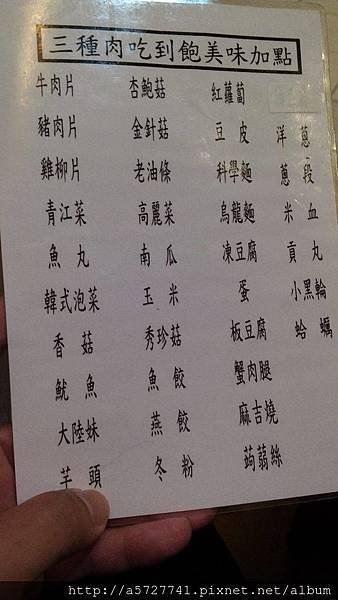 三種肉吃到飽美味加點
牛肉片 杏鮑菇 紅蘿蔔
豬肉片 金針菇 豆皮 洋蔥
雞柳片 老油條 科學麵 蔥段
青江菜 高麗菜 烏龍麵 米血
魚丸 南瓜 凍豆腐 貢丸
韓式泡菜 玉米 蛋 小黑輪
香菇 秀珍菇 板豆腐 蛤蠣
魷魚 魚餃 蟹肉腿
大陸妹 燕餃 麻吉燒
芋頭 冬粉 蒟蒻絲
http://a5727741.pixnet.net/album